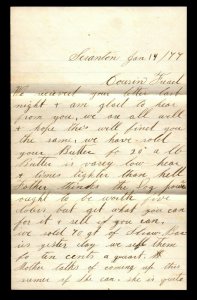 Scranton Jan 19/77
Cousin Friend
We recieved your letter last
night & am glad to hear
from you, we are all well
& hope this will find you
the same, we have sold
your Butter for 20¢ a lb
Butter is varey low hear
& times tighter than hell
Father thinks the Sig
ought to be worth five
dolars but get what you can
for it & sell if you can,
we sold 70 qt of
is yester day we sold them
for ten cents a quart.
Mother talks of coming up this
sumer if She can. she is quite